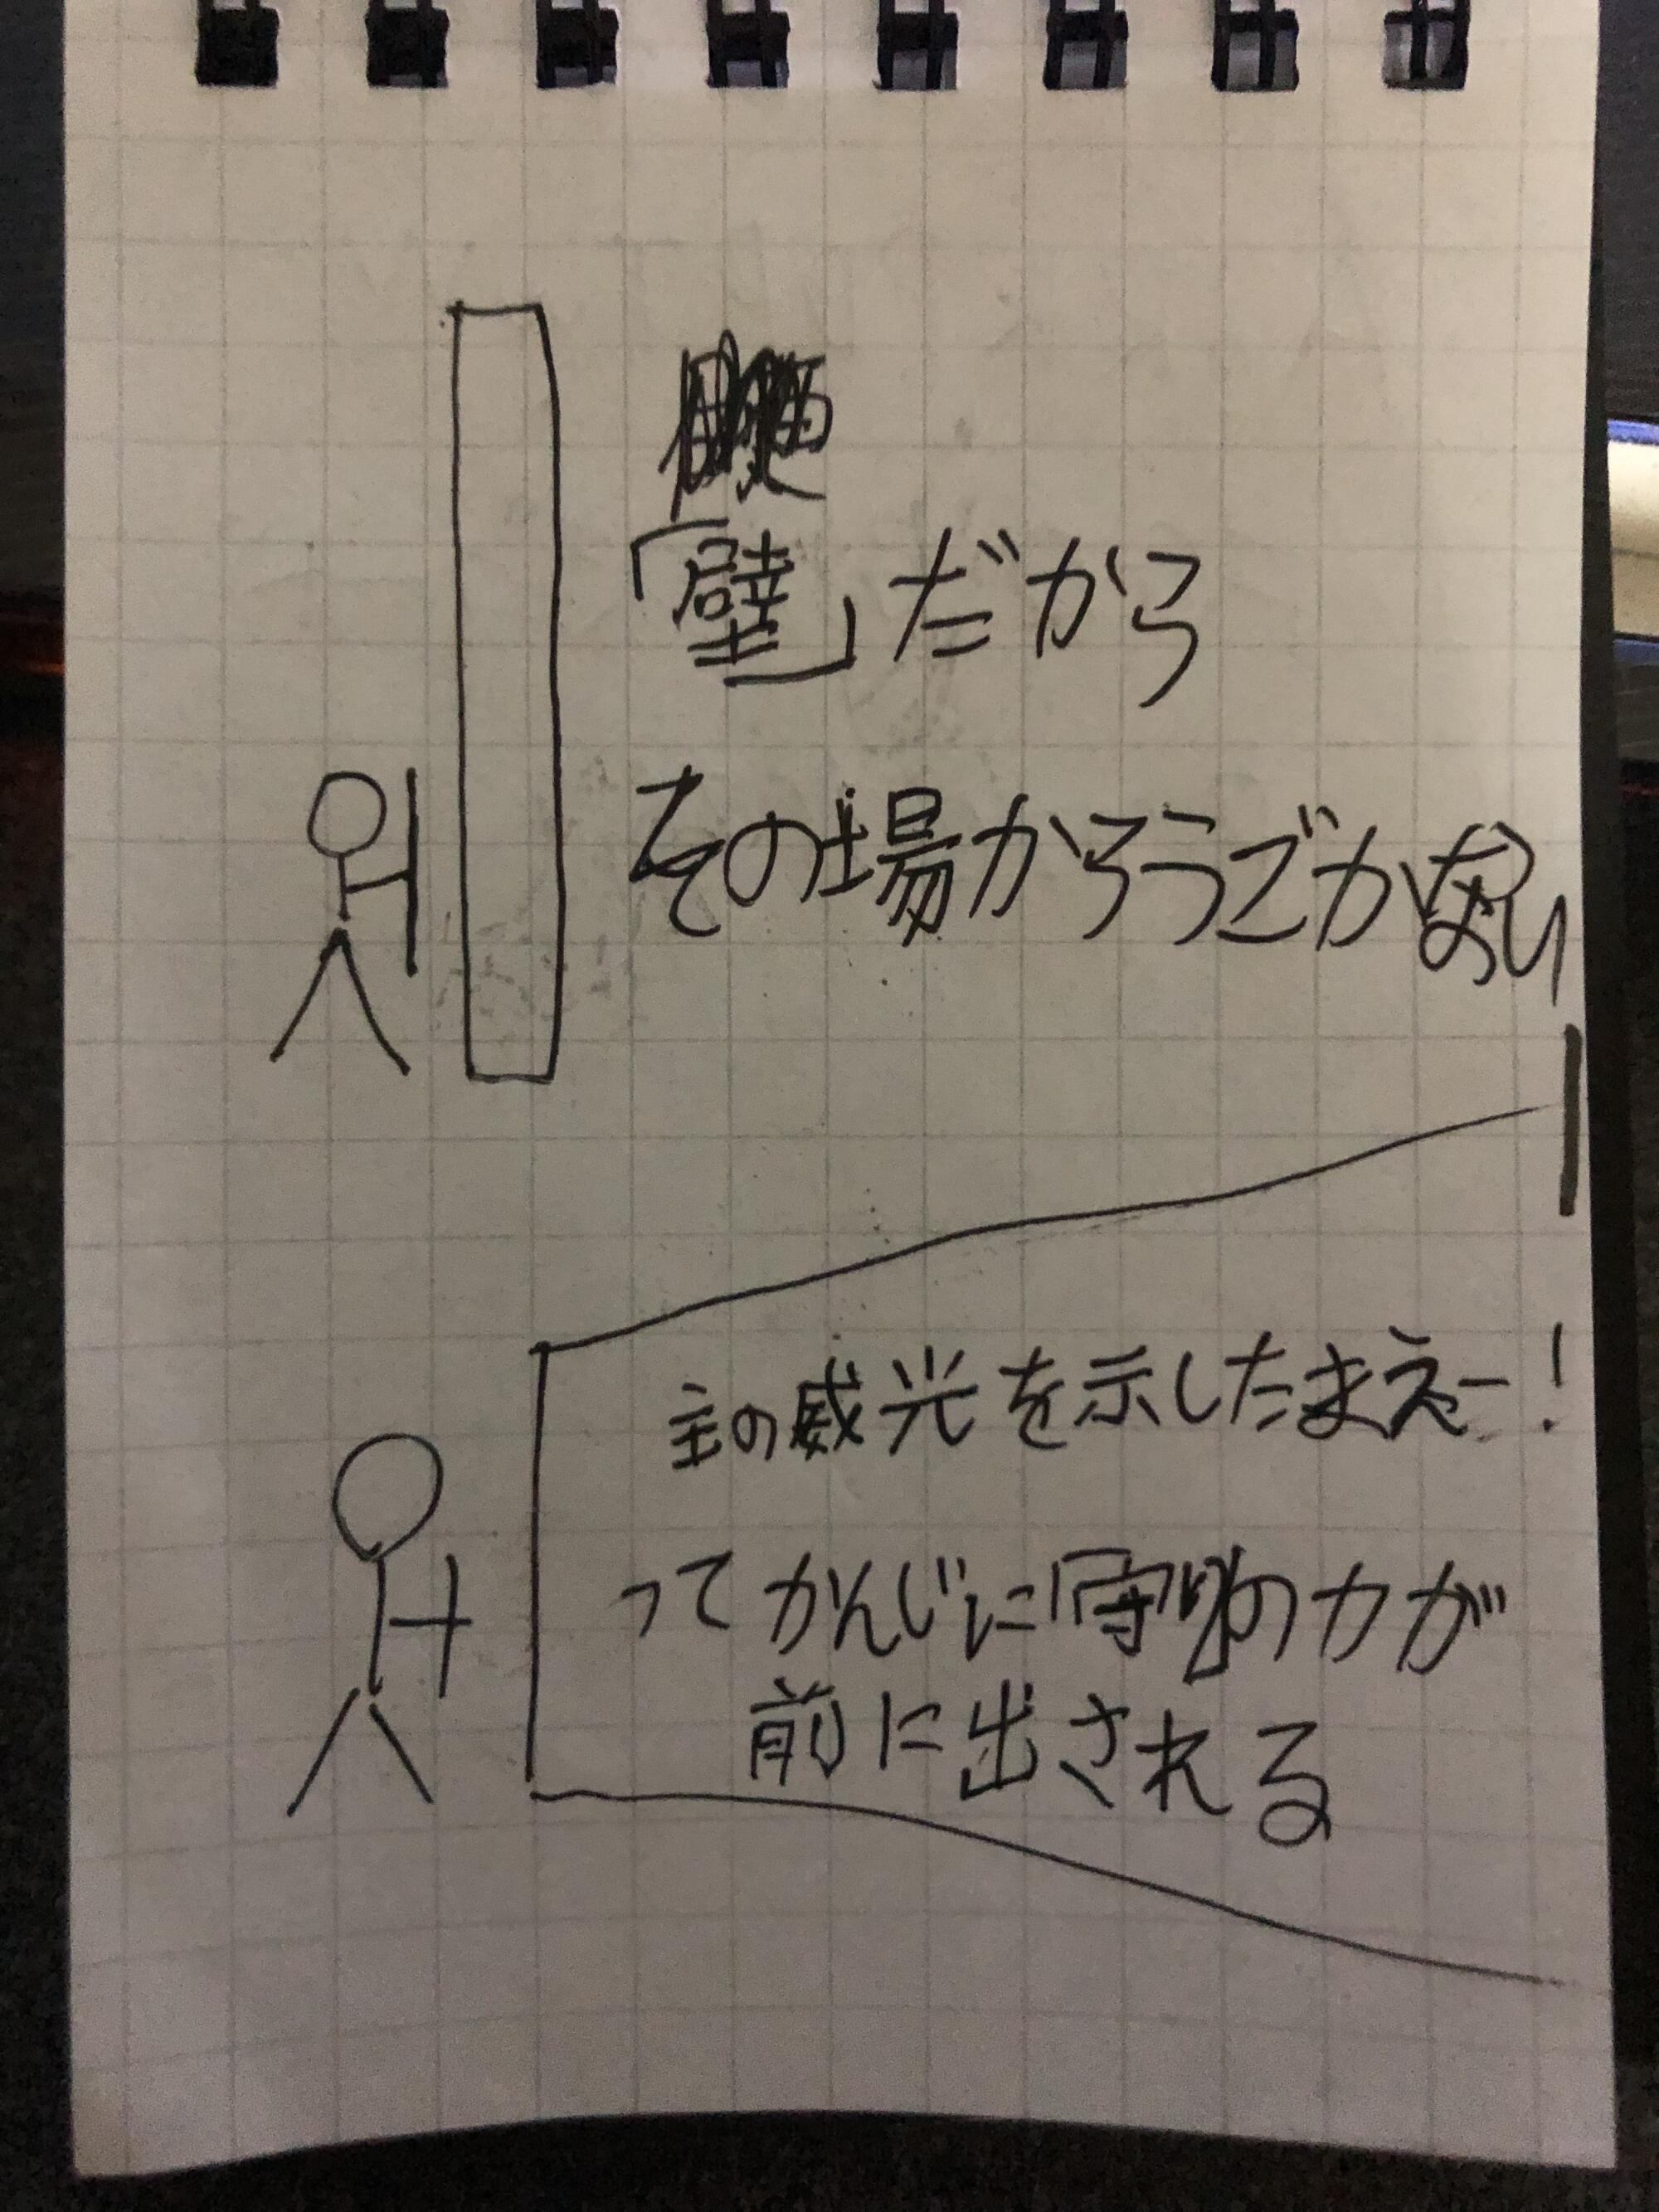 「壁」だから
その場からうごかない
主の威光を示したまえー!
ってかんじに「守りの力が
前に出される